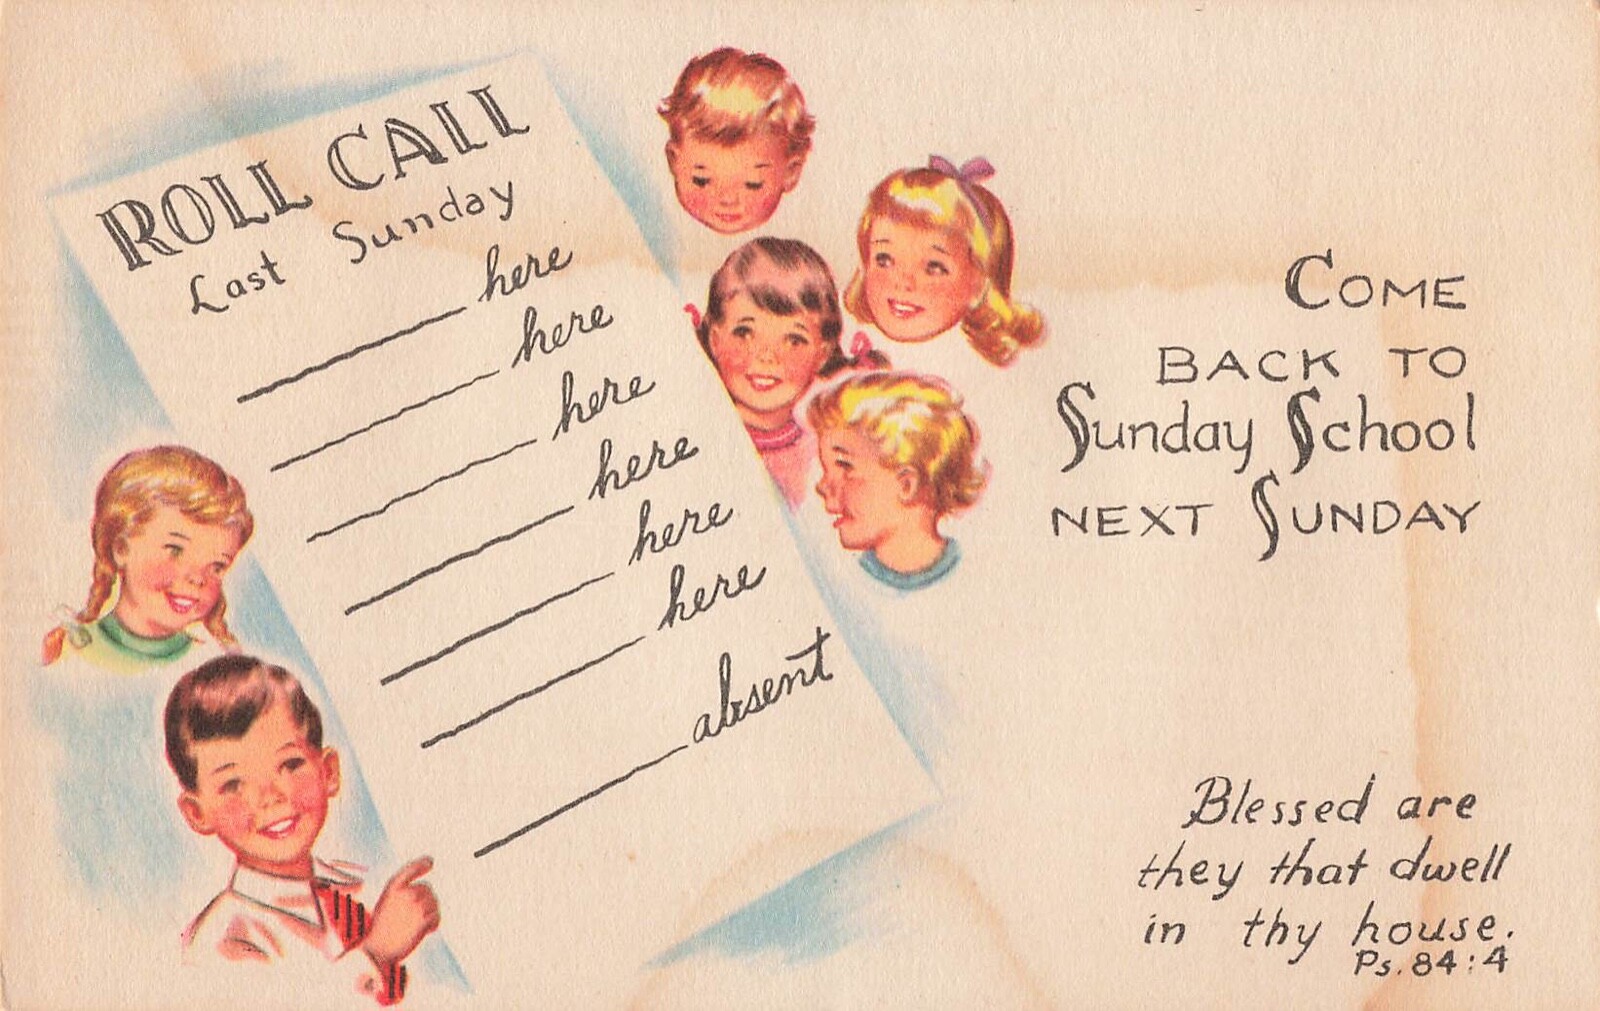 ROLL CALL
Last Sunday
here
here
here
here
here
here
absent
COME
BACK TO
Sunday School
NEXT SUNDAY
Blessed are
they that dwell
in thy house.
Ps. 84:4